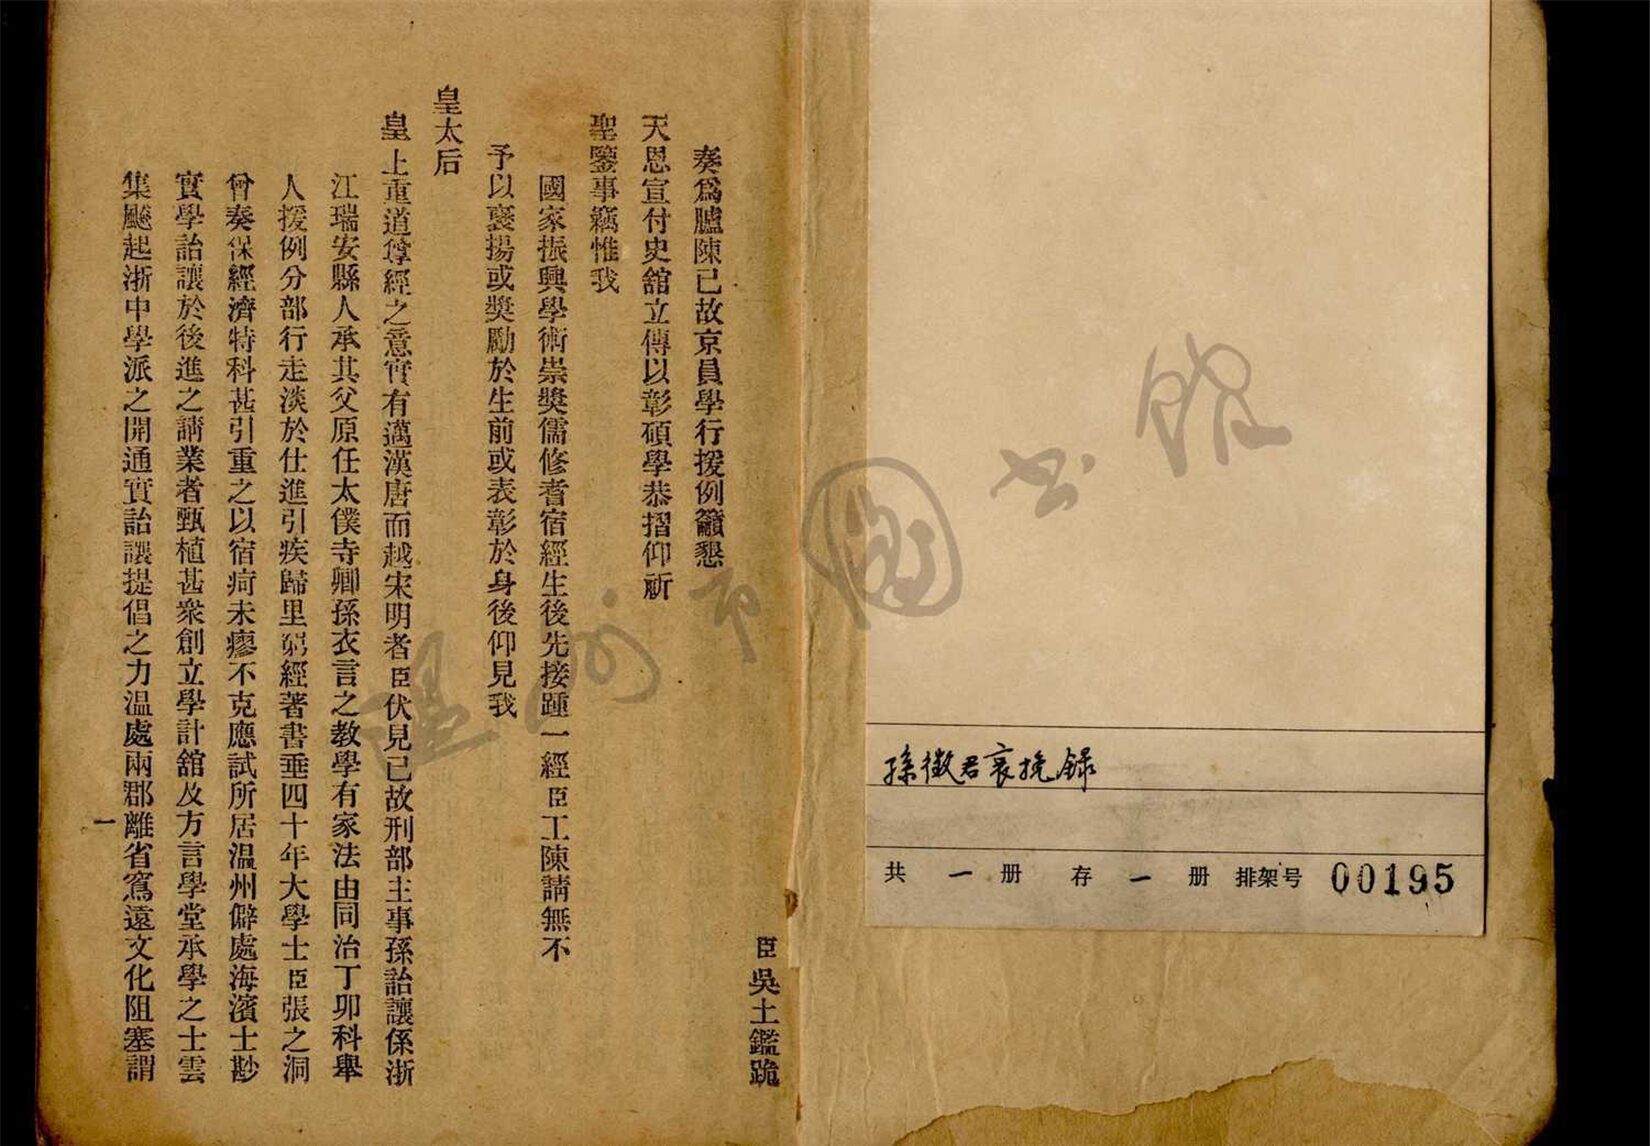 孫徵君哀挽録
共一册 存一册 排架号 00195
温州市圖书馆
臣吳士鑑跪
奏爲臚陳已故京員學行援例籲懇
天恩宣付史舘立傳以彰碩學恭摺仰祈
聖鑒事竊惟我
國家振興學術崇獎儒修耆宿經生後先接踵一經臣工陳請無不
予以襃揚或獎勵於生前或表彰於身後仰見我
皇太后
皇上重道尊經之意實有邁漢唐而越宋明者臣伏見已故刑部主事孫詒讓係浙
江瑞安縣人承其父原任太僕寺卿孫衣言之教學有家法由同治丁卯科舉
人援例分部行走淡於仕進引疾歸里窮經著書垂四十年大學士臣張之洞
曾奏保經濟特科甚引重之以宿疴未瘳不克應試所居温州僻處海濱士尠
實學詒讓於後進之請業者甄植甚衆創立學計舘及方言學堂承學之士雲
集颷起浙中學派之開通實詒讓提倡之力温處兩郡離省窵遠文化阻塞謂
一